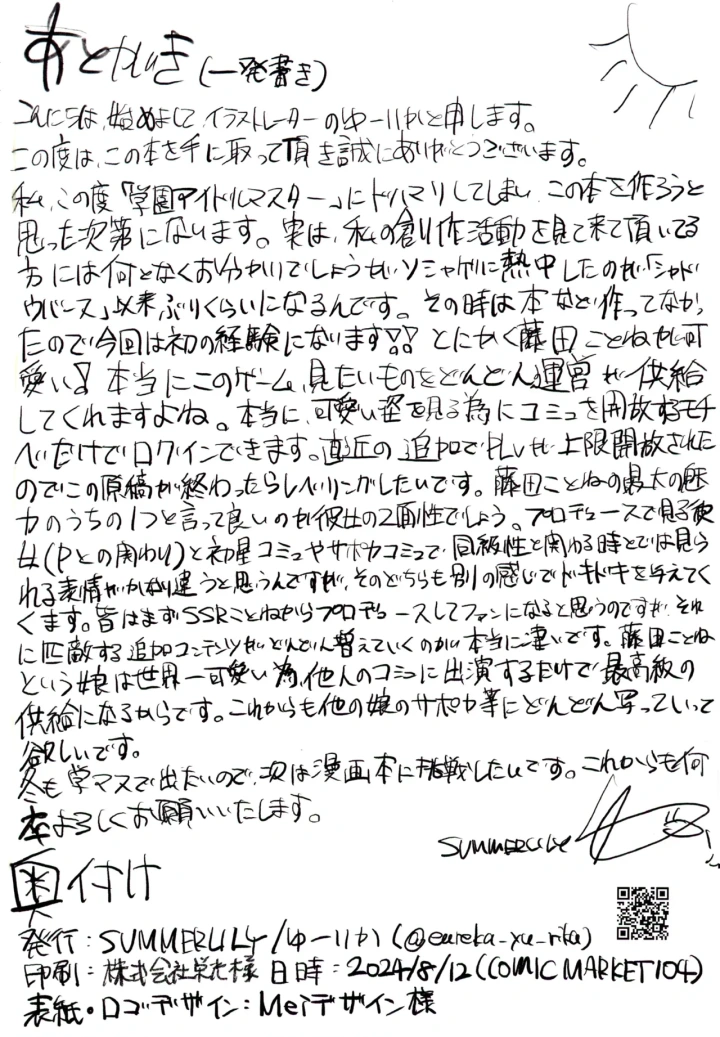 あとがき(一発書き)
こんにちは、始めまして、イラストレーターのゆーりかと申します。
この度は、この本を手に取って頂き誠にありがとうございます。
私、この度「学園アイドルマスター」にドハマりしてしまい、この本を作ろうと
思った次第になります。実は、私の創作活動を見て来て頂いてる
方には何となくお分かりでしょうがソシャゲに熱中したのが「シャドウ
バース」以来ぶりくらいになるんです。その時は本など作ってなかっ
たので今回は初の経験になります!! とにかく藤田ことねが可
愛い! 本当にこのゲーム、見たいものをどんどん運営が供給
してくれますよね。本当に、可愛い姿を見る為にコミュを開放するモチ
ベだけでログインできます。直近の追加でPLvが上限開放された
のでこの原稿が終わったらレベリングしたいです。藤田ことねの最大の魅
力のうちの1つと言って良いのが彼女の2面性でしょう。プロデュースで見る彼
女(Pとの関わり)と初星コミュやサポカコミュで、同級生と関わる時とでは見ら
れる表情がかなり違うと思うんですが、そのどちらも別の感じでドキドキを与えてく
くます。皆はまずSSRことねからプロデュースしてファンになると思うのですが、それ
に匹敵する追加コンテンツがどんどん増えていくのが本当に凄いです。藤田ことね
という娘は世界一可愛い為、他人のコミュに出演するだけで最高級の
供給になるからです。これからも他の娘のサポカ等にどんどん写っていって
欲しいです。
冬も学マスで出たいので、次は漫画本に挑戦したいです。これからも何
卒よろしくお願いいたします。
SUMMERLILY
奥付け
発行:SUMMERLILY/ゆーりか(@eureka_yu_rika)
印刷:株式会社栄光様 日時:2024/8/12(COMIC MARKET104)
表紙・ロゴデザイン:Meiデザイン様